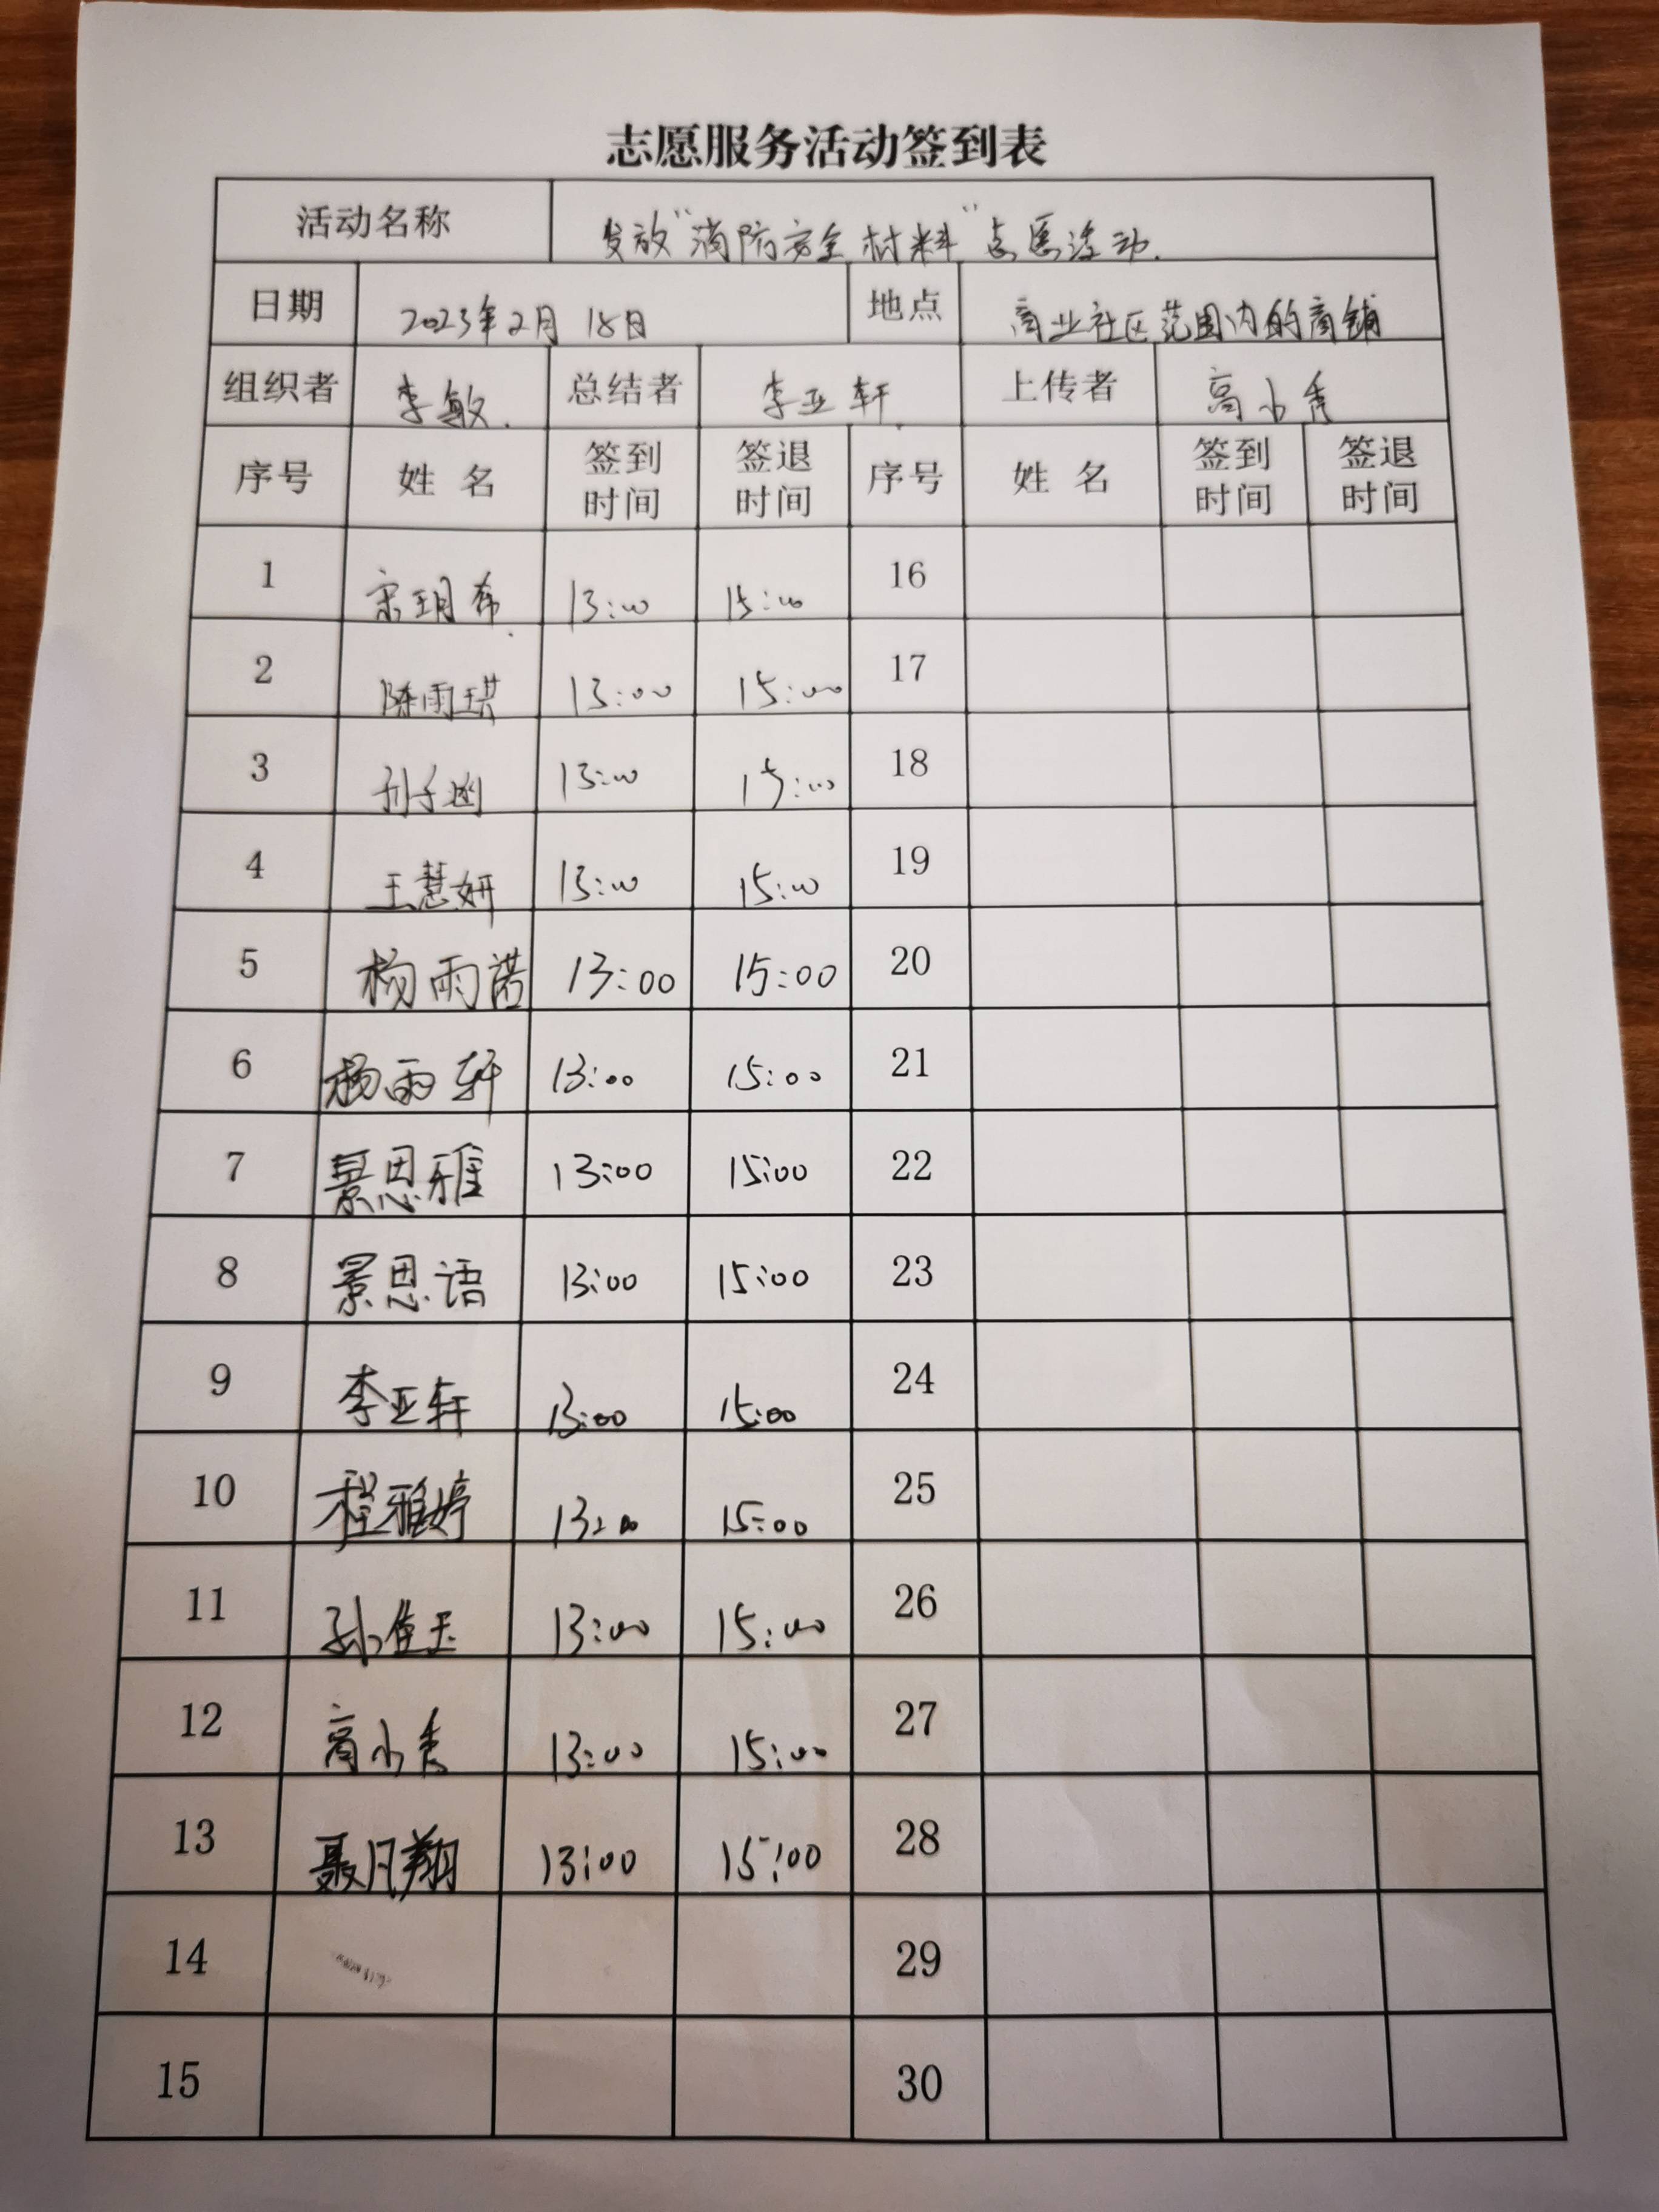 志愿服务活动签到表
活动名称 发放“消防安全材料”志愿活动.
日期 2023年2月18日 地点 商业社区范围内的商铺
组织者 李敏. 总结者 李亚轩. 上传者 高小秀
序号 姓名 签到时间 签退时间 序号 姓名 签到时间 签退时间
1 宋玥希 13:00 15:00 16
2 陈雨琪 13:00 15:00 17
3 孙子涵 13:00 15:00 18
4 王慧妍 13:00 15:00 19
5 杨雨诺 13:00 15:00 20
6 杨雨轩 13:00 15:00 21
7 景思雅 13:00 15:00 22
8 景思语 13:00 15:00 23
9 李亚轩 13:00 15:00 24
10 程雅婷 13:00 15:00 25
11 孙佳玉 13:00 15:00 26
12 高小秀 13:00 15:00 27
13 聂凡翔 13:00 15:00 28
14 29
15 30